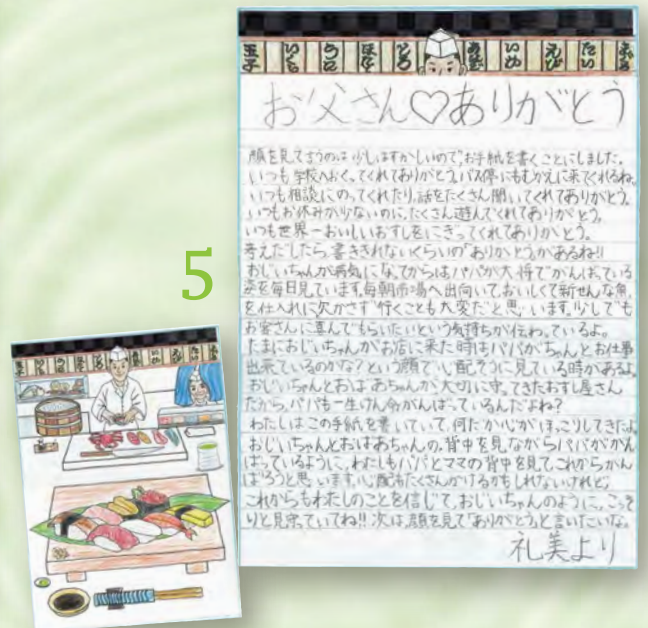 玉子 いくら うに とろ いか えび たい
お父さん♡ありがとう
顔を見て言うのは少しはずかしいので、お手紙を書くことにしました。
いつも学校へおくってくれてありがとう。バス停にもむかえに来てくれるね。
いつも相談にのってくれたり、話をたくさん聞いてくれてありがとう。
いつもお休みが少ないのに、たくさん遊んでくれてありがとう。
いつも世界一おいしいおすしをにぎってくれてありがとう。
考えだしたら、書ききれないくらいの「ありがとう」があるね!!
おじいちゃんが病気になってからはパパが大将でがんばっている
姿を毎日見ています。毎朝市場へ出向いて、おいしくて新せんな魚
を仕入れに欠かさず行くことも大変だと思います。少しでも
お客さんに喜んでもらいたいという気持ちが伝わっているよ。
たまにおじいちゃんがお店に来た時はパパがちゃんとお仕事
出来ているのかな?という顔で心配そうに見ている時があるよ。
おじいちゃんとおばあちゃんが大切に守ってきたおすし屋さん
だから、パパも一生けん命がんばっているんだよね?
わたしはこの手紙を書いていて、何だか心がほっこりしてきたよ。
おじいちゃんとおばあちゃんの、背中を見ながらパパががん
ばっているように、わたしもパパとママの背中を見て、これからがん
ばろうと思います。心配もたくさんかけるかもしれないけれど、
これからもわたしのことを信じて、おじいちゃんのように、こっそ
りと見守っていてね!!次は、顔を見て「ありがとう」と言いたいな。
礼美より
5